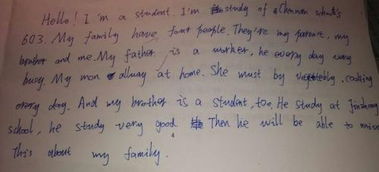 Hello! I'm a student. I'm study of
603. My family have four people. They're my parture, my
brother and me. My father is a worker, he every day very
busy. My mon allway at home. She must by cooking
every day. And my brother is a student, too. He study at
school, he study very good. Then he will be able to
This about my family.